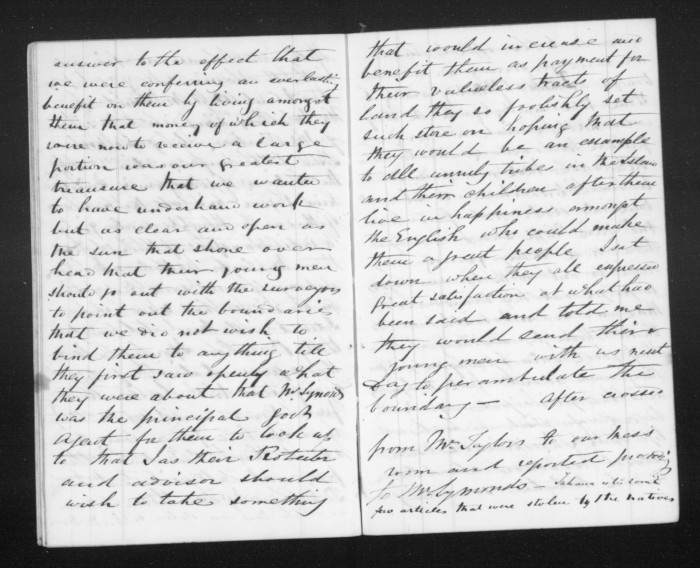 answer to the effect that
we were conferring an everlasting
benefit on them by living amongst
them that money of which they
were now to receive a large
portion was our greatest
treasure that we wanted
to have underhand work
but as clear and open as
the sun that shone over
head that their young men
should go out with the surveyors
to point out the boundaries
that we did not wish to
bind them to anything till
they first saw openly what
they were about that Mr Symonds
was the principal govt
Agent for them to look up
to that I as their Protector
and advisor should
wish to take something
that would increase and
benefit them as payment for
their valueless tracts of
land they so foolishly set
such store on hoping that
they would be an example
to all unruly tribes in the Island
and their children after them
live in happiness amongst
the English who could make
them a great people I sat
down when they all expressed
great satisfaction at what had
been said and told me
they would send their
young men with us next
day to perambulate the
boundary — After crossed
from Mr Taylors to our mess
room and reported proceedgs
to Mr Symonds —
few articles that were stolen by the natives